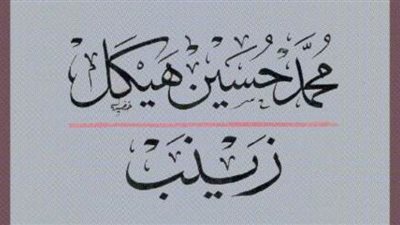 مُحَمَّد حُسَيْن هَيْكَل
زَيْنَب